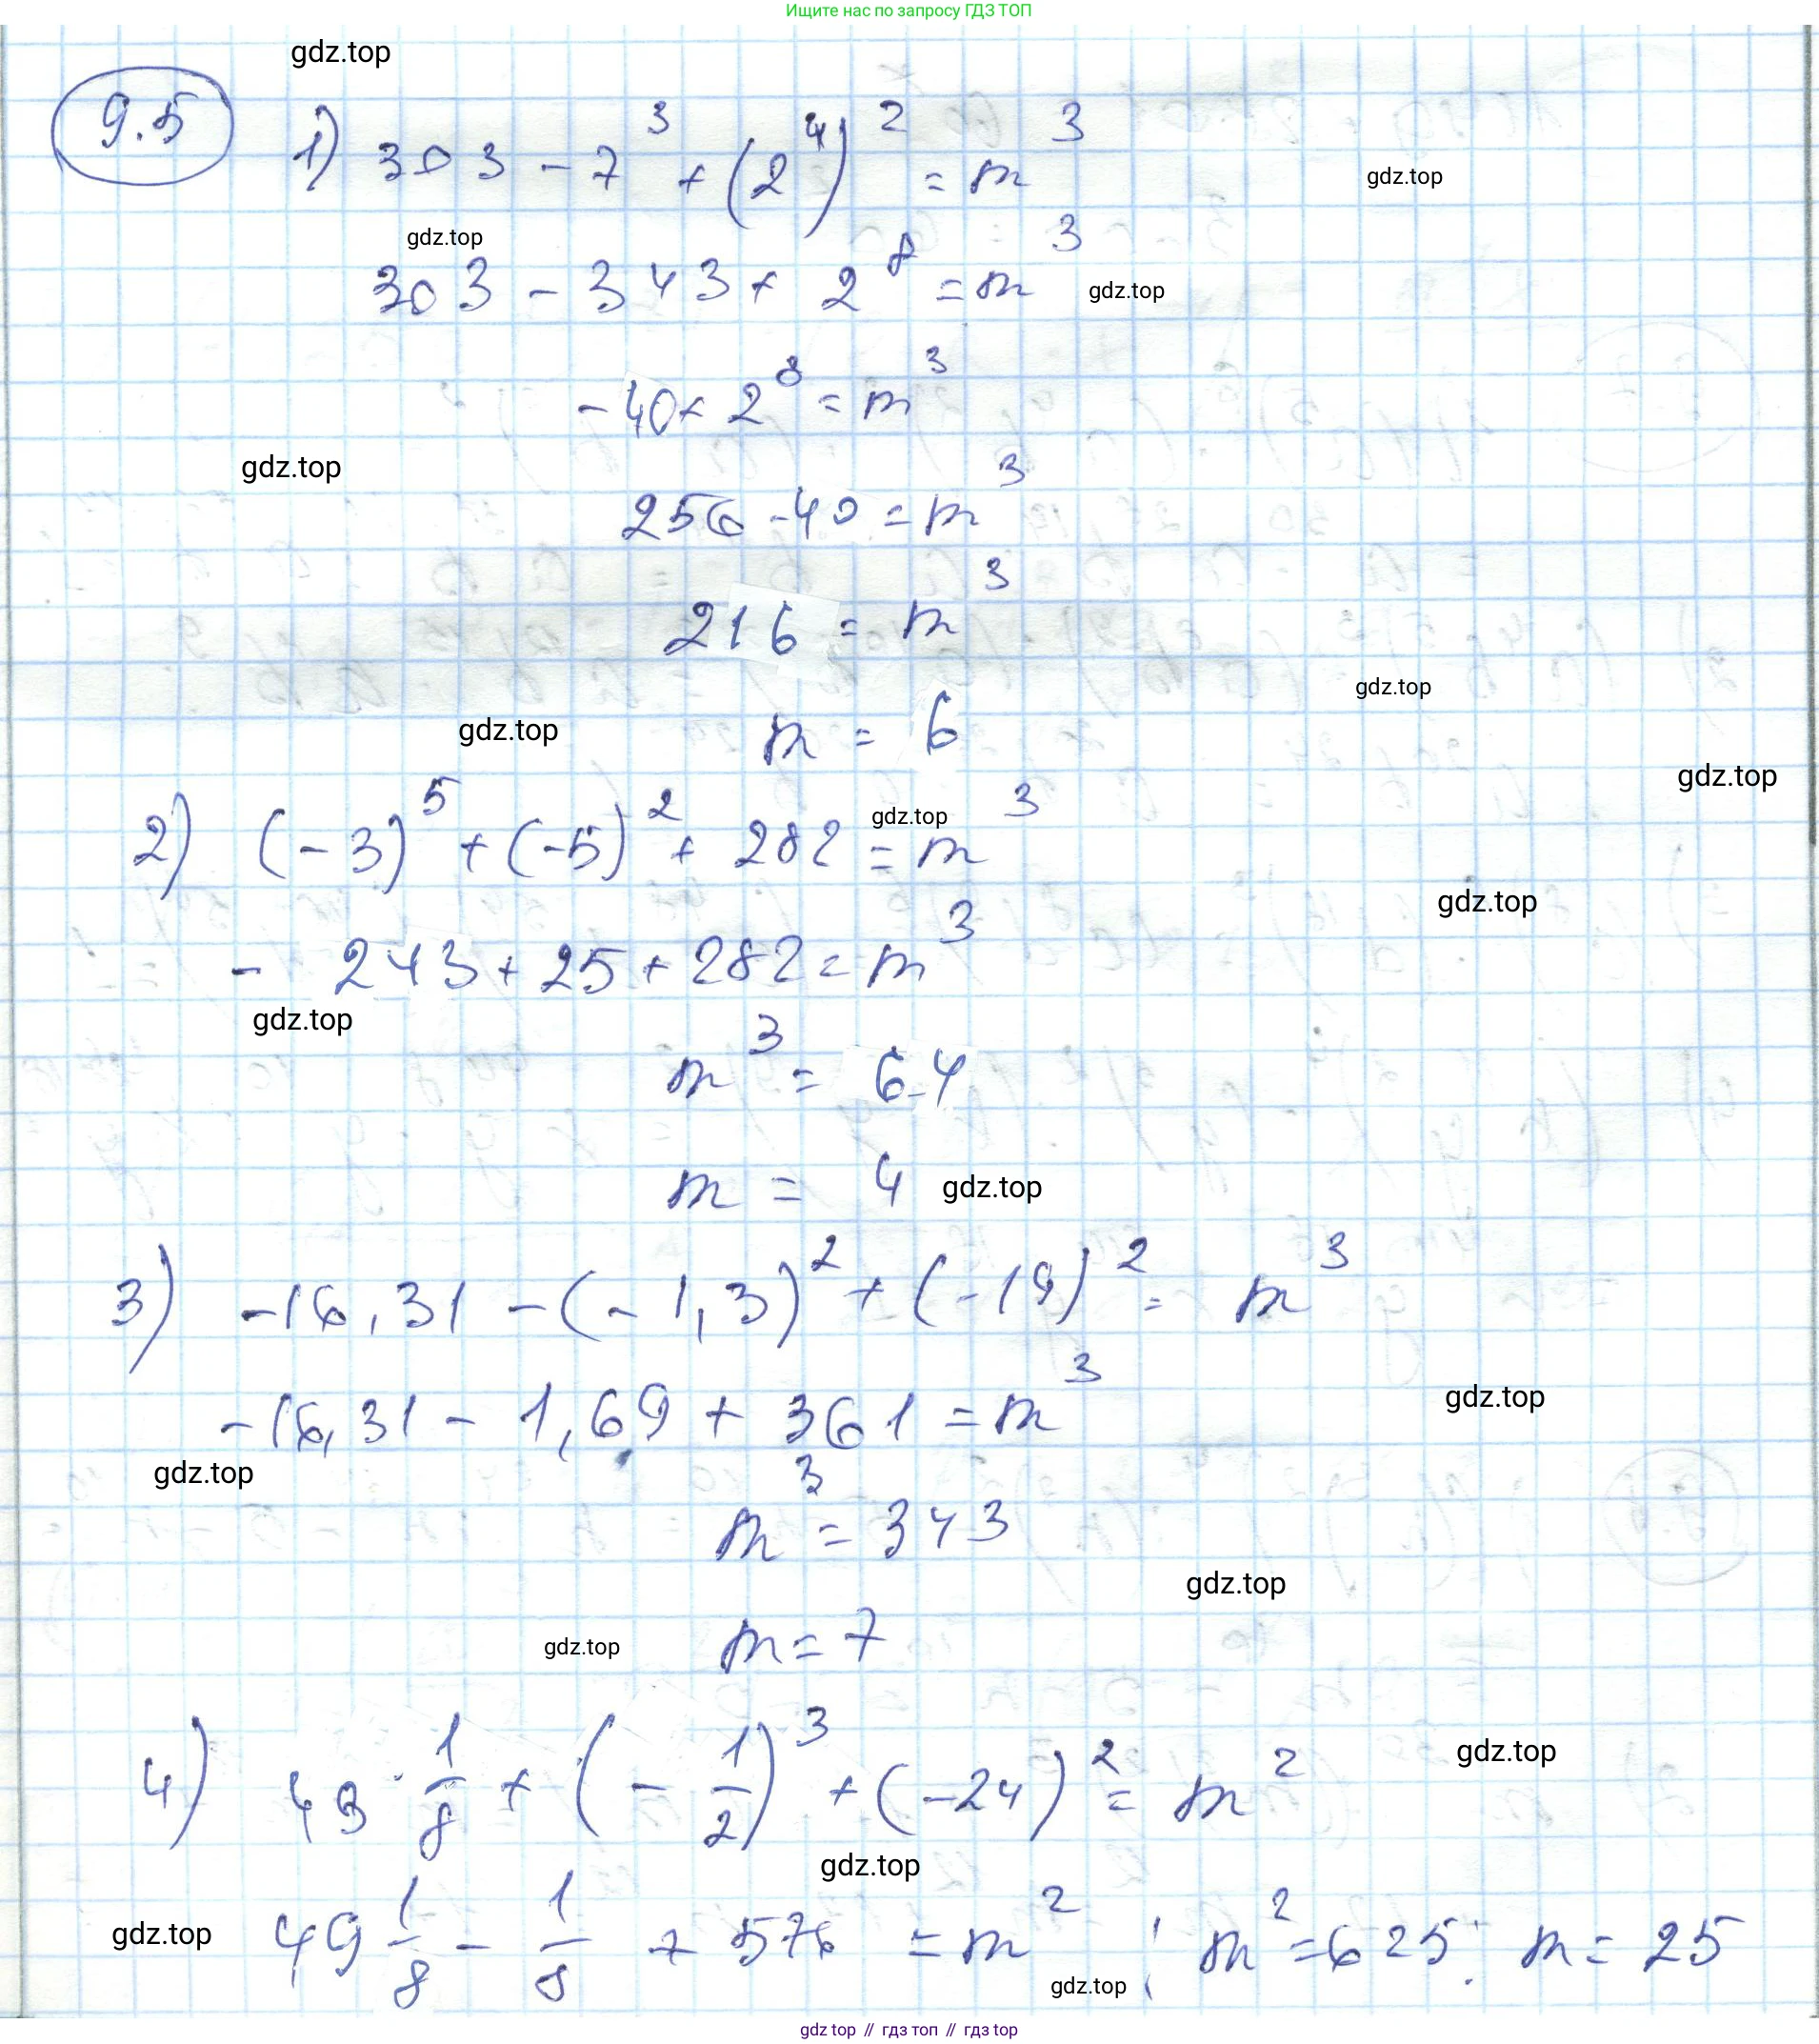 Ищите нас по запросу ГДЗ ТОП
gdz.top
9.5 1) 303 - 7³ + (2⁴)² = m³
gdz.top
gdz.top
303 - 343 + 2⁸ = m³
gdz.top
-40 + 2⁸ = m³
gdz.top
256 - 40 = m³
216 = m³
gdz.top
gdz.top
m = 6
gdz.top
2) (-3)⁵ + (-5)² + 282 = m³
gdz.top
gdz.top
- 243 + 25 + 282 = m³
gdz.top
m³ = 64
m = 4
gdz.top
3) -16,31 - (-1,3)² + (-19)² = m³
-16,31 - 1,69 + 361 = m³
gdz.top
gdz.top
m³ = 343
gdz.top
m = 7
gdz.top
4) 49 1/8 + (- 1/2)³ + (-24)² = m²
gdz.top
gdz.top
49 1/8 - 1/8 + 576 = m² ; m² = 625; m = 25
gdz.top
gdz.top
gdz.top // гдз топ // гдз top